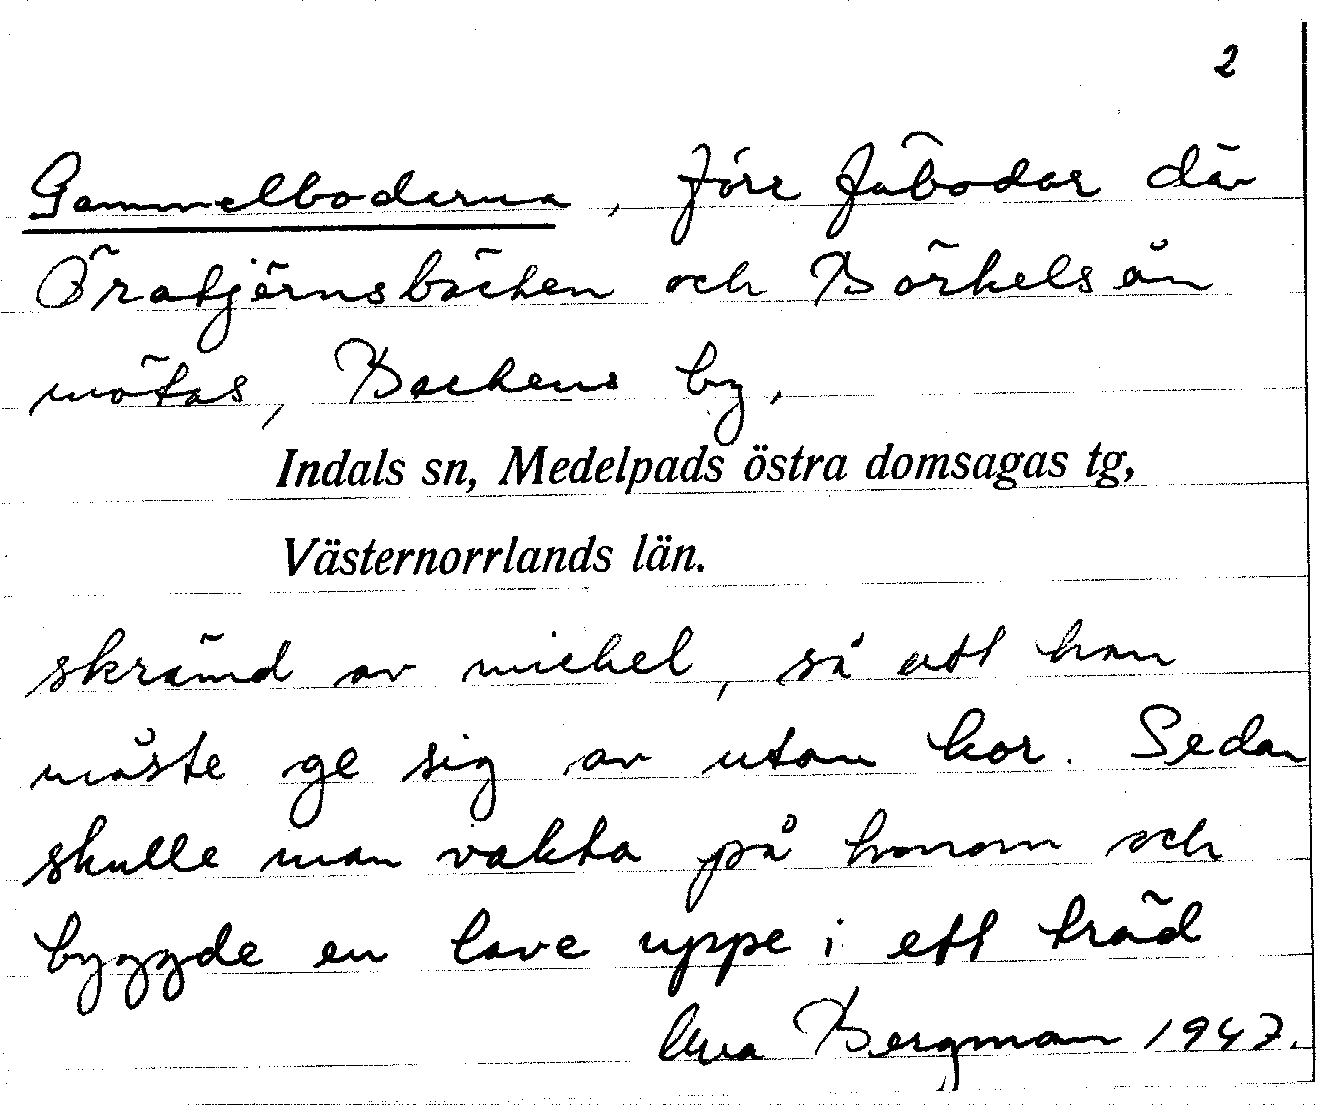 2
Gammelboderna, förr fäbodar där
Öratjärnsbäcken och Börkelsån
mötas, Backens by,
Indals sn, Medelpads östra domsagas tg,
Västernorrlands län.
skrämd av michel, så att han
måste ge sig av utan kor. Sedan
skulle man vakta på honom och
byggde en lave uppe i ett träd
Bergman 1947.